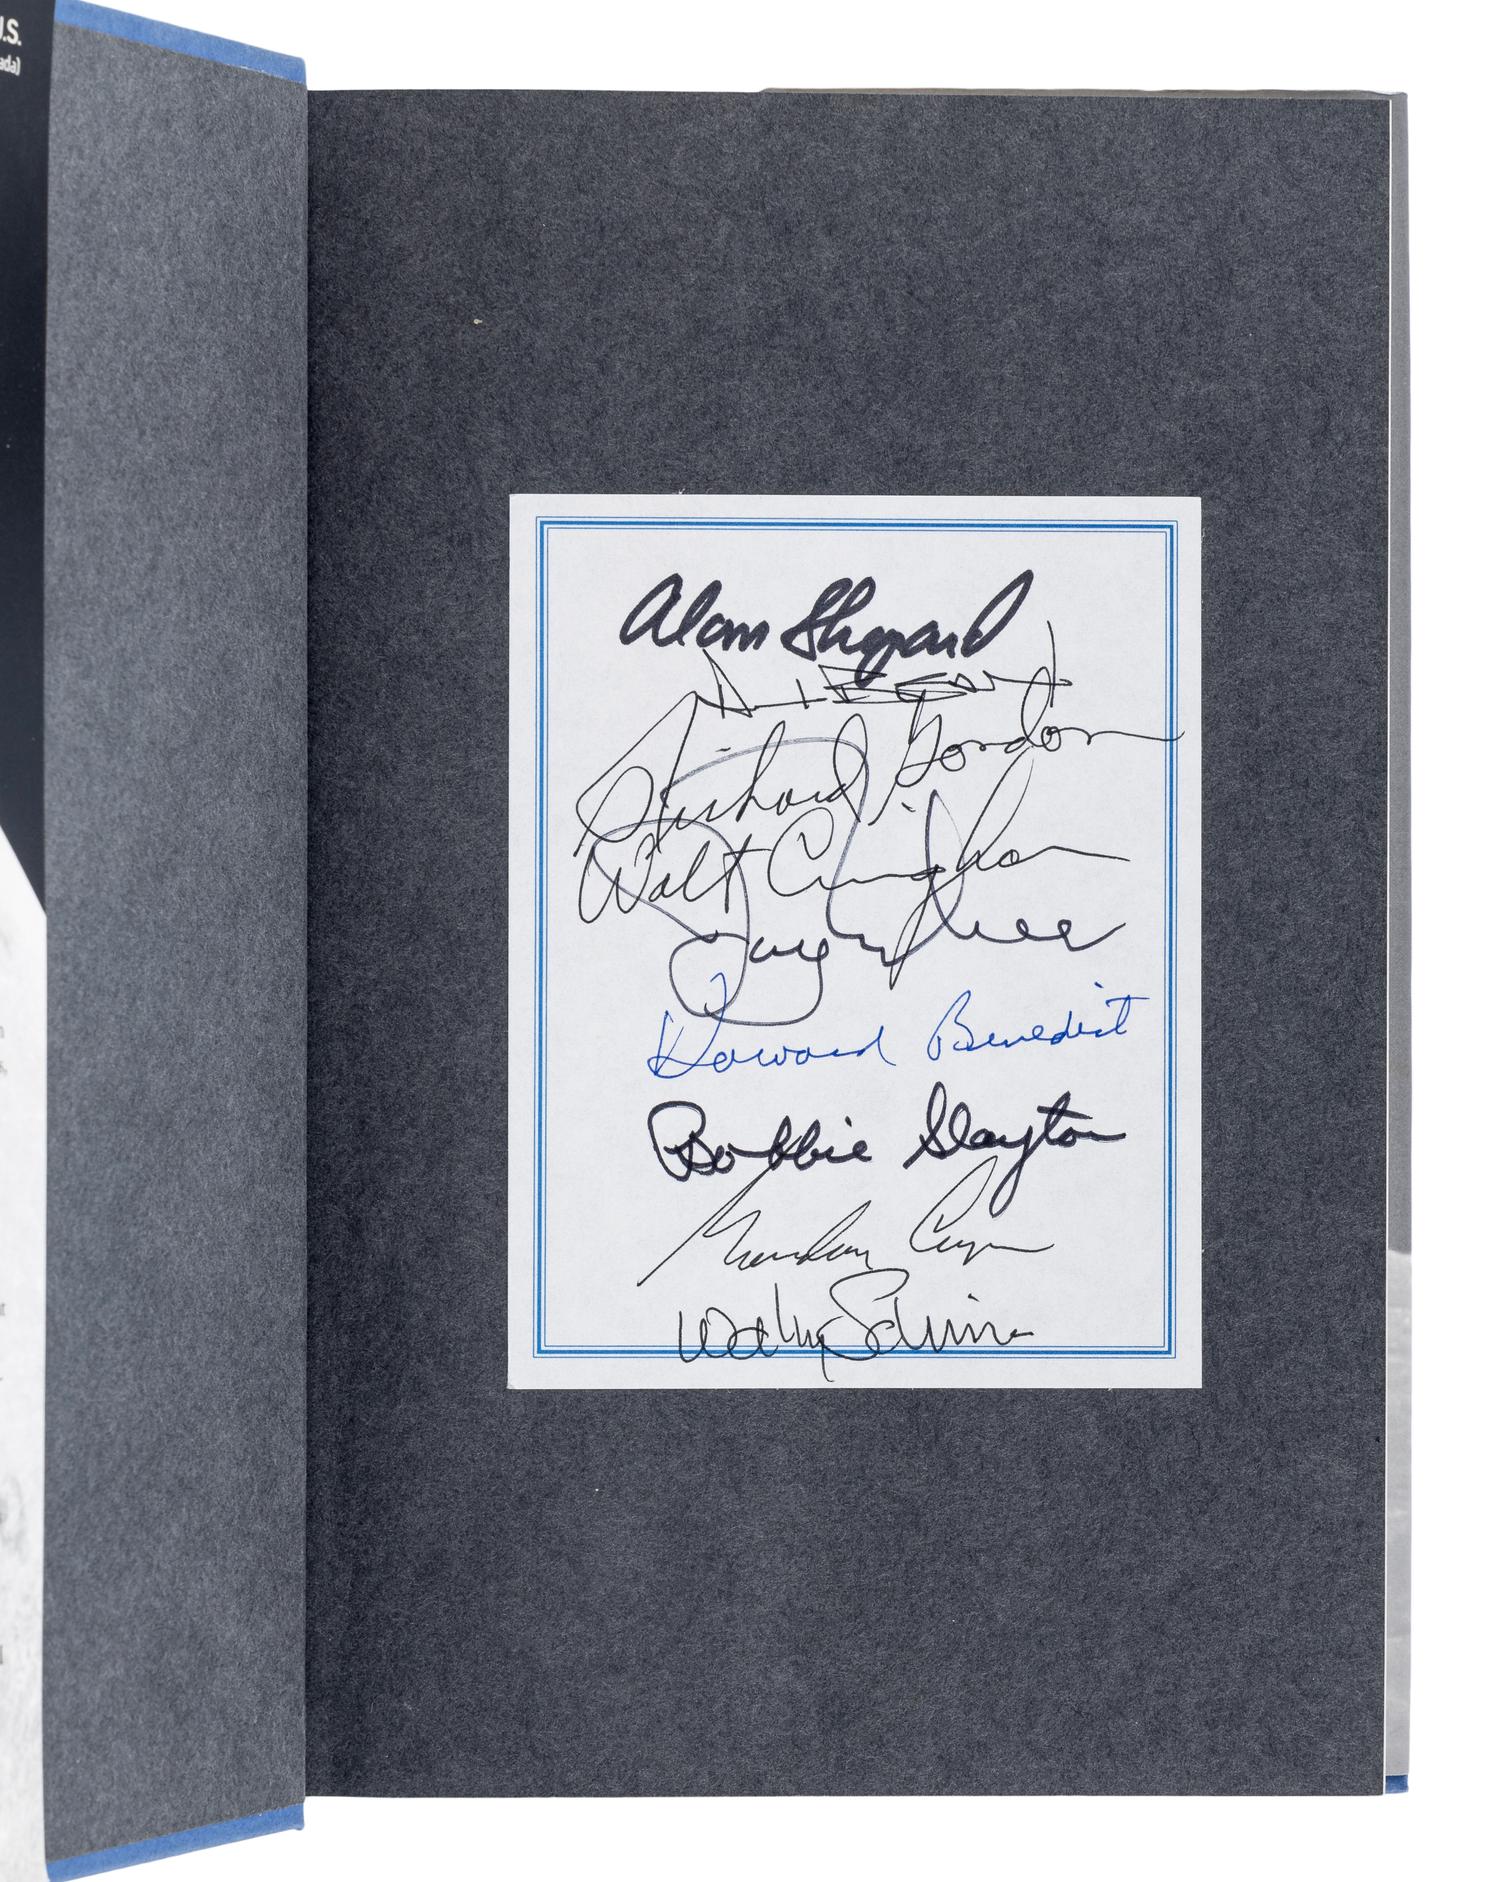 U.S.
ada)
Alan Shepard
Richard Gordon
Walt Cunningham
Howard Benedict
Bobbie Slayton
Gordon Cooper
Wally Schirra